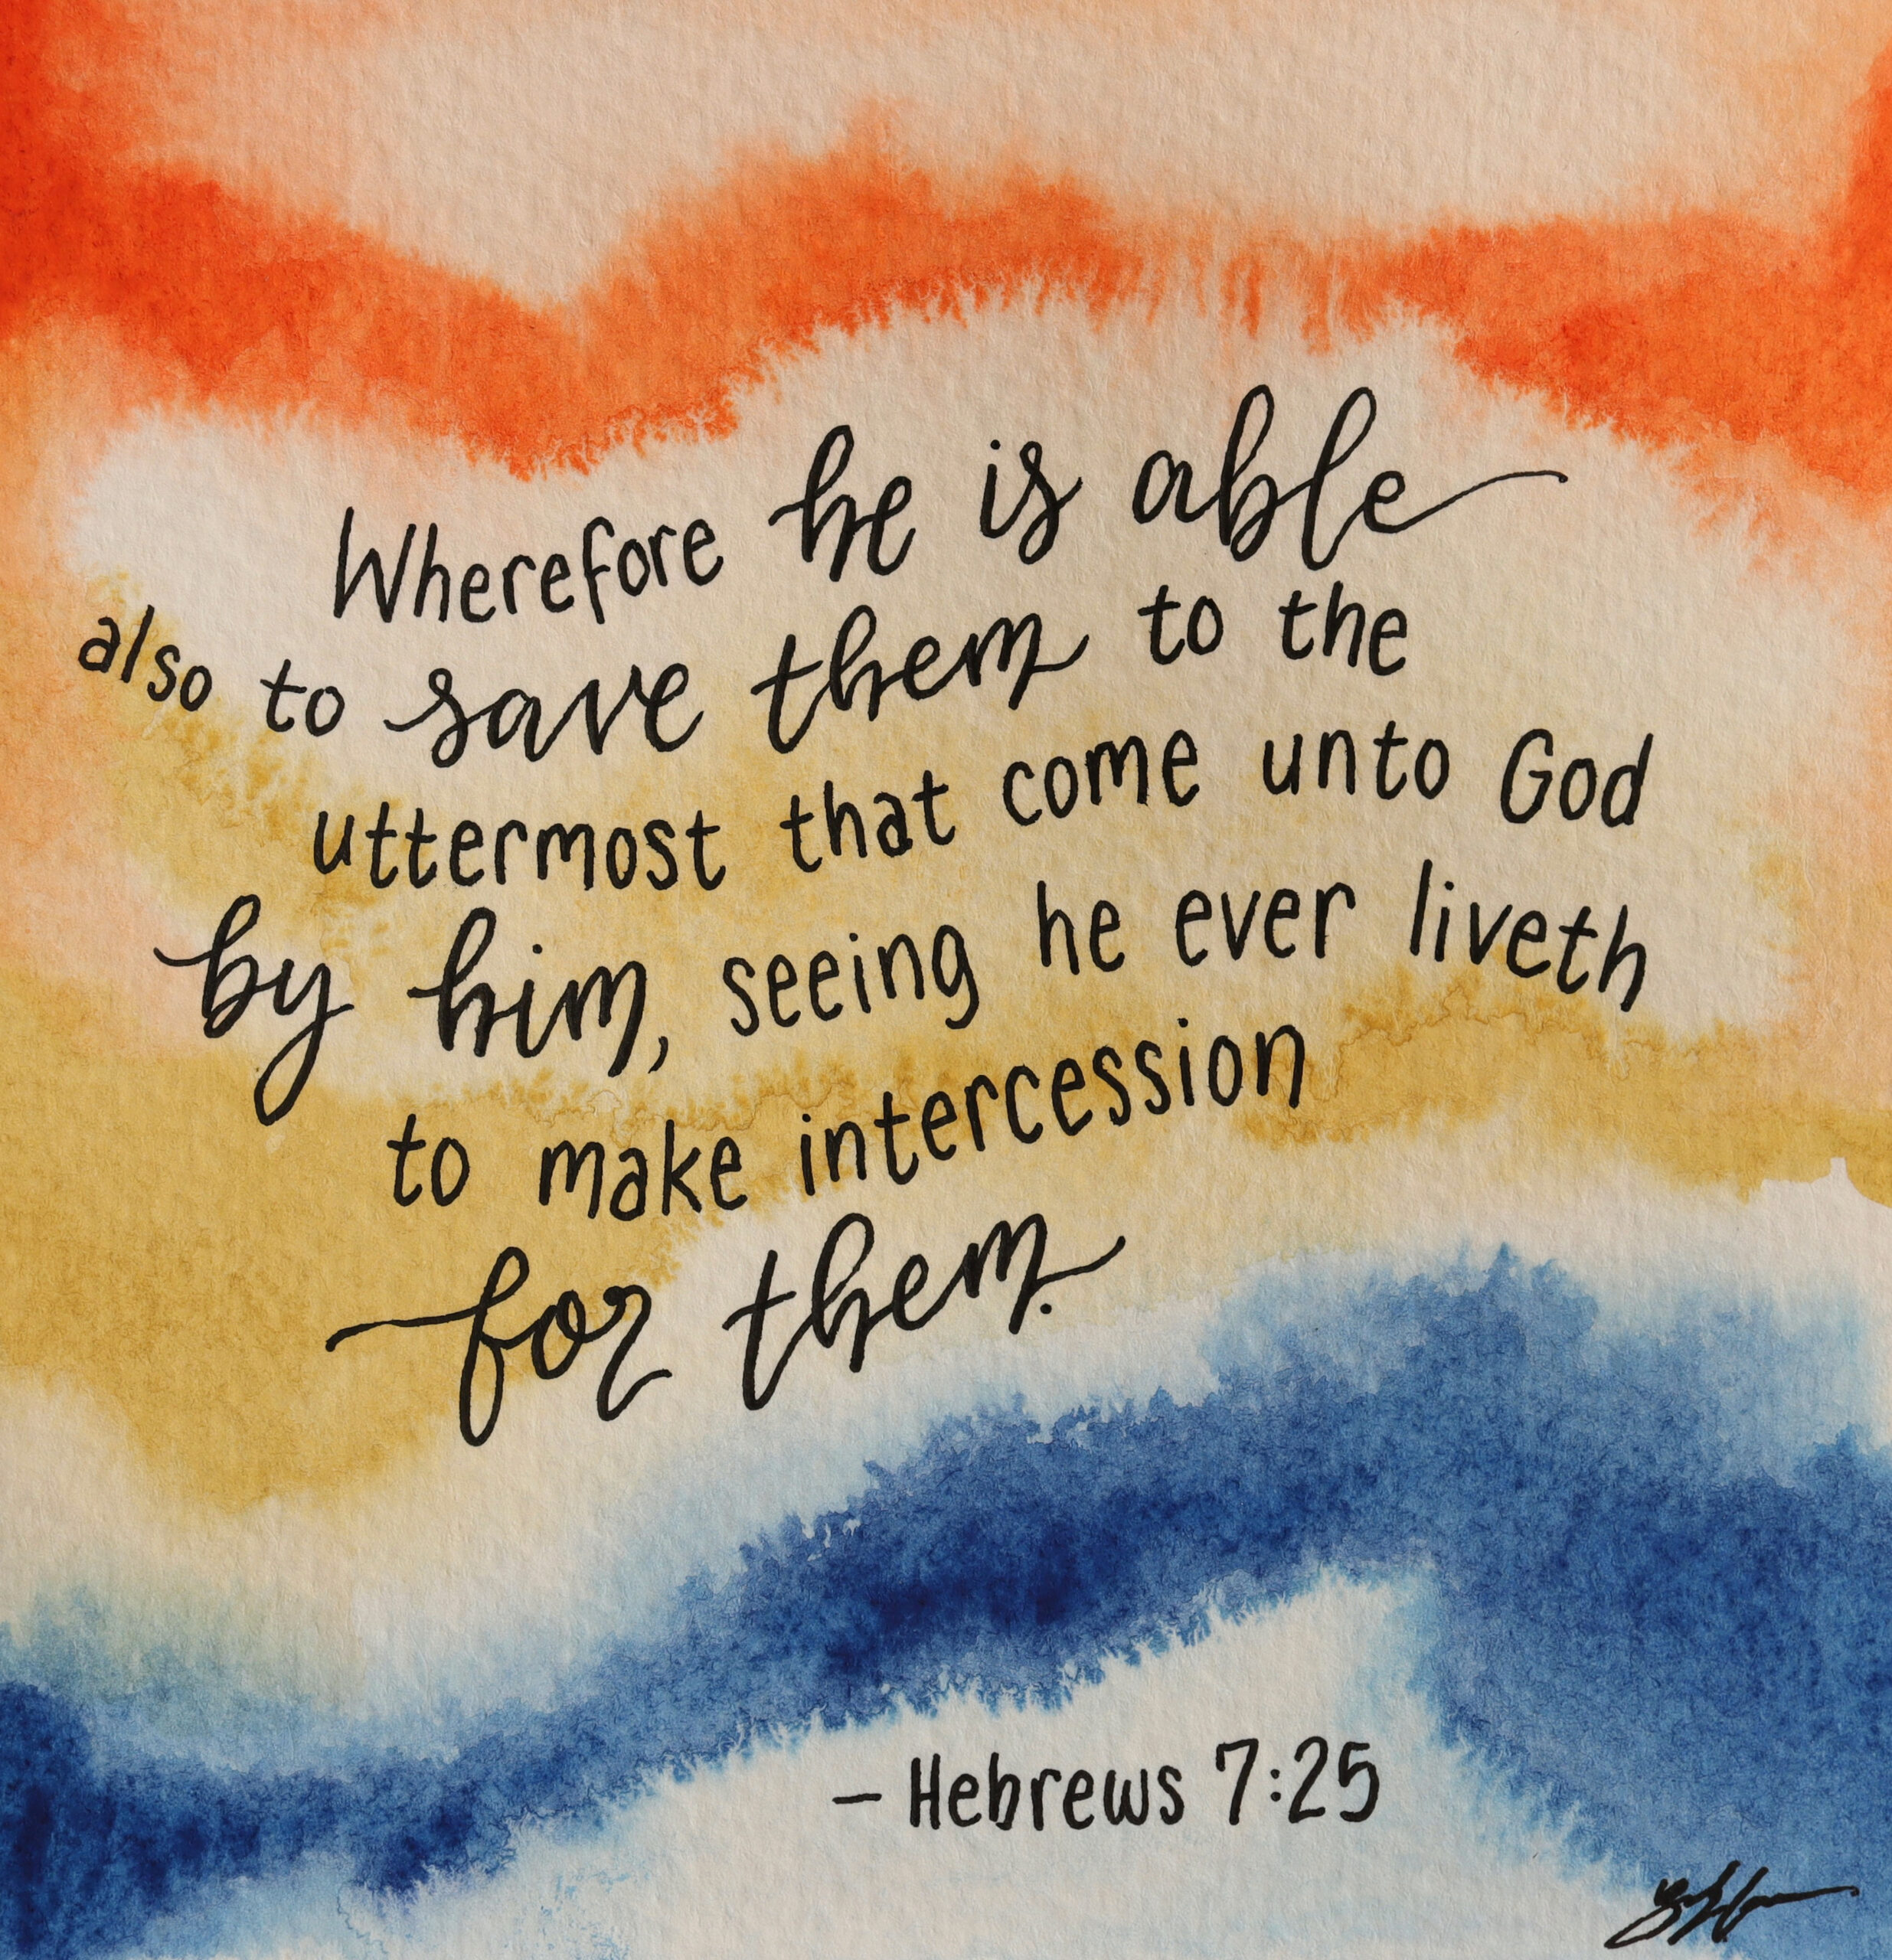 Wherefore he is able
also to save them to the
uttermost that come unto God
by him, seeing he ever liveth
to make intercession
for them.
– Hebrews 7:25